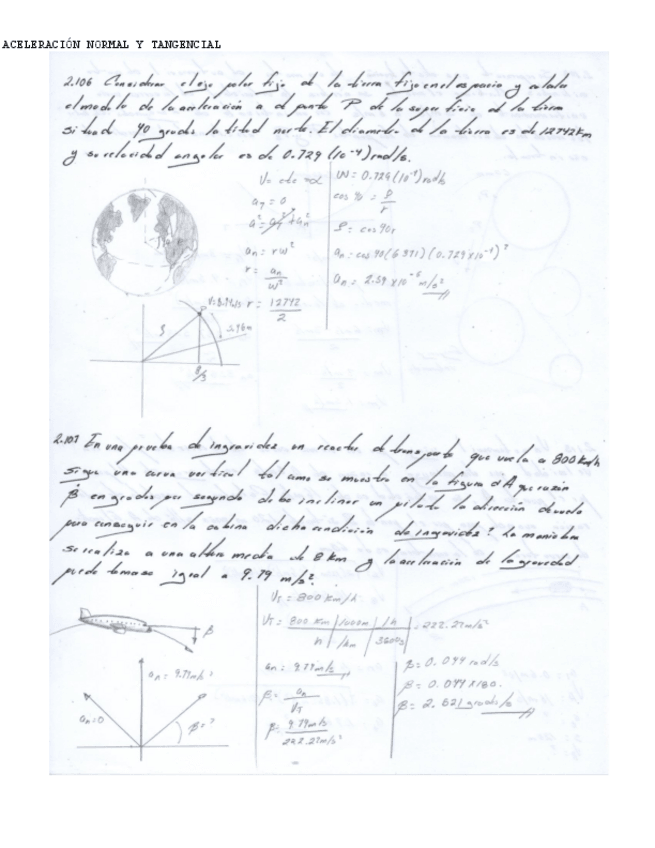 ACELERACIÓN NORMAL Y TANGENCIAL
2.106 Considerar el eje polar fijo de la tierra fijo en el espacio y calcular
el modulo de la aceleración a del punto P de la superficie de la tierra
situado 40 grados latitud norte. El diametro de la tierra es de 12742 km
y su velocidad angular es de 0.729 (10⁻⁴) rad/s.
a_T = 0
a_n = r w²
r = a_n / w²
r = 12742 / 2
W = 0.729 (10⁻⁴) rad/s
cos 40 = ρ / r
ρ = cos 40 r
a_n = cos 40 (6371) (0.729 x10⁻⁴)²
a_n = 2.59 x10⁻⁵ m/s²
P
2.107 En una prueba de ingravidez un reactor de transporte que vuela a 800 km/h
sigue una curva vertical tal como se muestra en la figura
β̇ en grados por segundo debe inclinar un piloto la dirección de vuelo
para conseguir en la cabina dicha condición de ingravidez? La maniobra
se realiza a una altura media de 8 km y la aceleración de la gravedad
puede tomarse igual a 9.79 m/s².
β
V_T = 800 km/h
V_T = 800 km | 1000m | 1h = 222.22 m/s²
h | 1km | 3600s
a_n = 9.79 m/s
β = a_n / V_T
β = 9.79 m/s / 222.22 m/s²
β = 0.044 rad/s
β = 0.044 x180
β = 2.521 grados/s
a_n = 9.79 m/s²
a_n = 0
β = ?